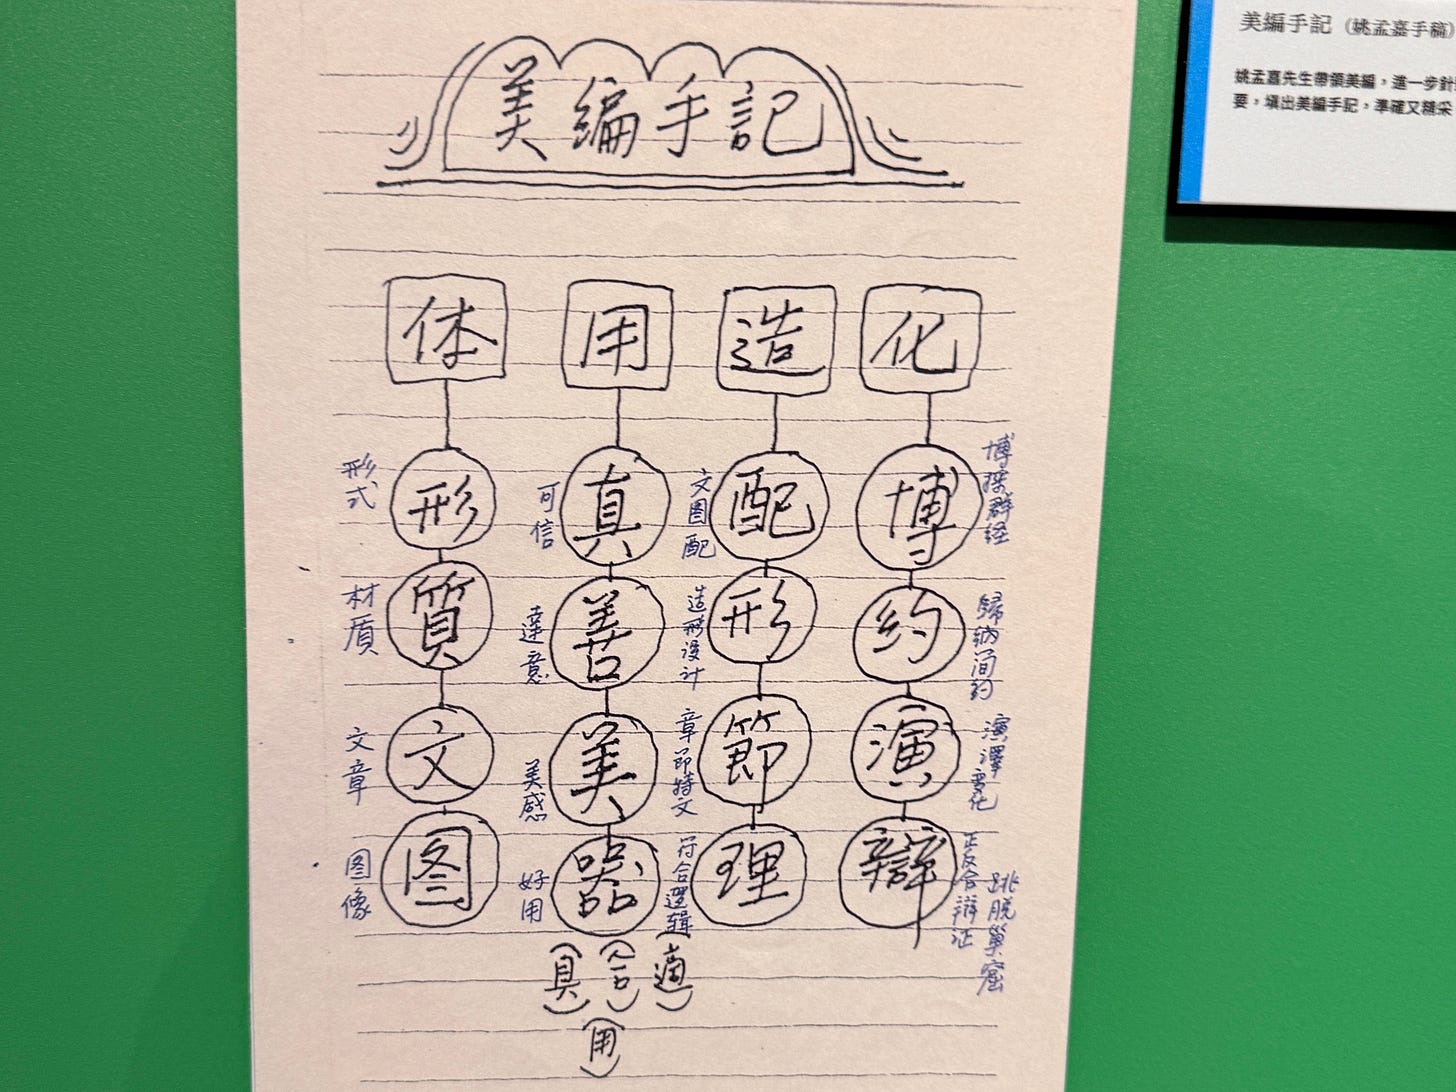 美編手記
体 用 造 化
形 真 配 博
形式
可信
文圖配
博採群経
質 善 形 約
材质
達意
造形设计
歸納简约
文 美 節 演
文章
美感
章節特文
演澤变化
图 器 理 辯
图像
好用
符合邏辑
正反合辯证
跳脱巢窟
(具) (合) (適)
(用)
美編手記 (姚孟嘉手稿)
姚孟嘉先生帶領美編，進一步針
要，填出美編手記，準確又精采